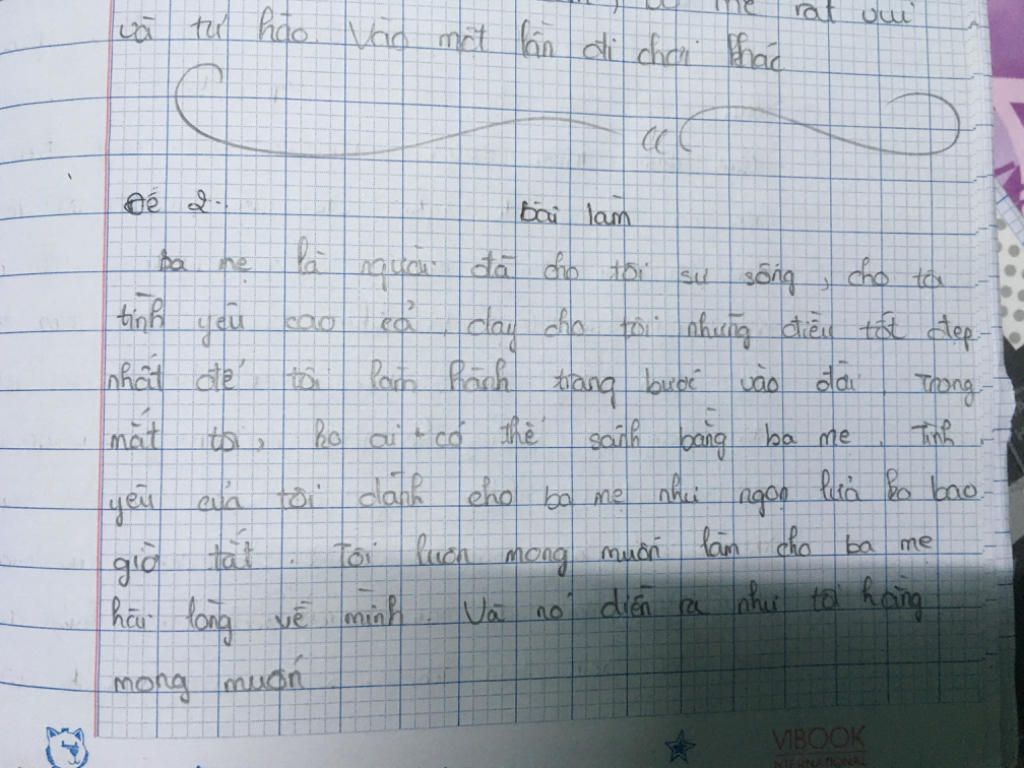 mẹ rất vui
và tự hào. Vào một lần đi chơi khác
Đề 2:
Bài làm
Ba mẹ là người đã cho tôi sự sống, cho tôi
tình yêu cao cả, dạy cho tôi những điều tốt đẹp
nhất để tôi làm hành trang bước vào đời. Trong
mắt tôi, ko ai có thể sánh bằng ba mẹ. Tình
yêu của tôi dành cho ba mẹ như ngọn lửa ko bao
giờ tắt. Tôi luôn mong muốn làm cho ba mẹ
hài lòng về mình. Và nó diễn ra như tôi hằng
mong muốn
VIBOOK
INTERNATIONAL